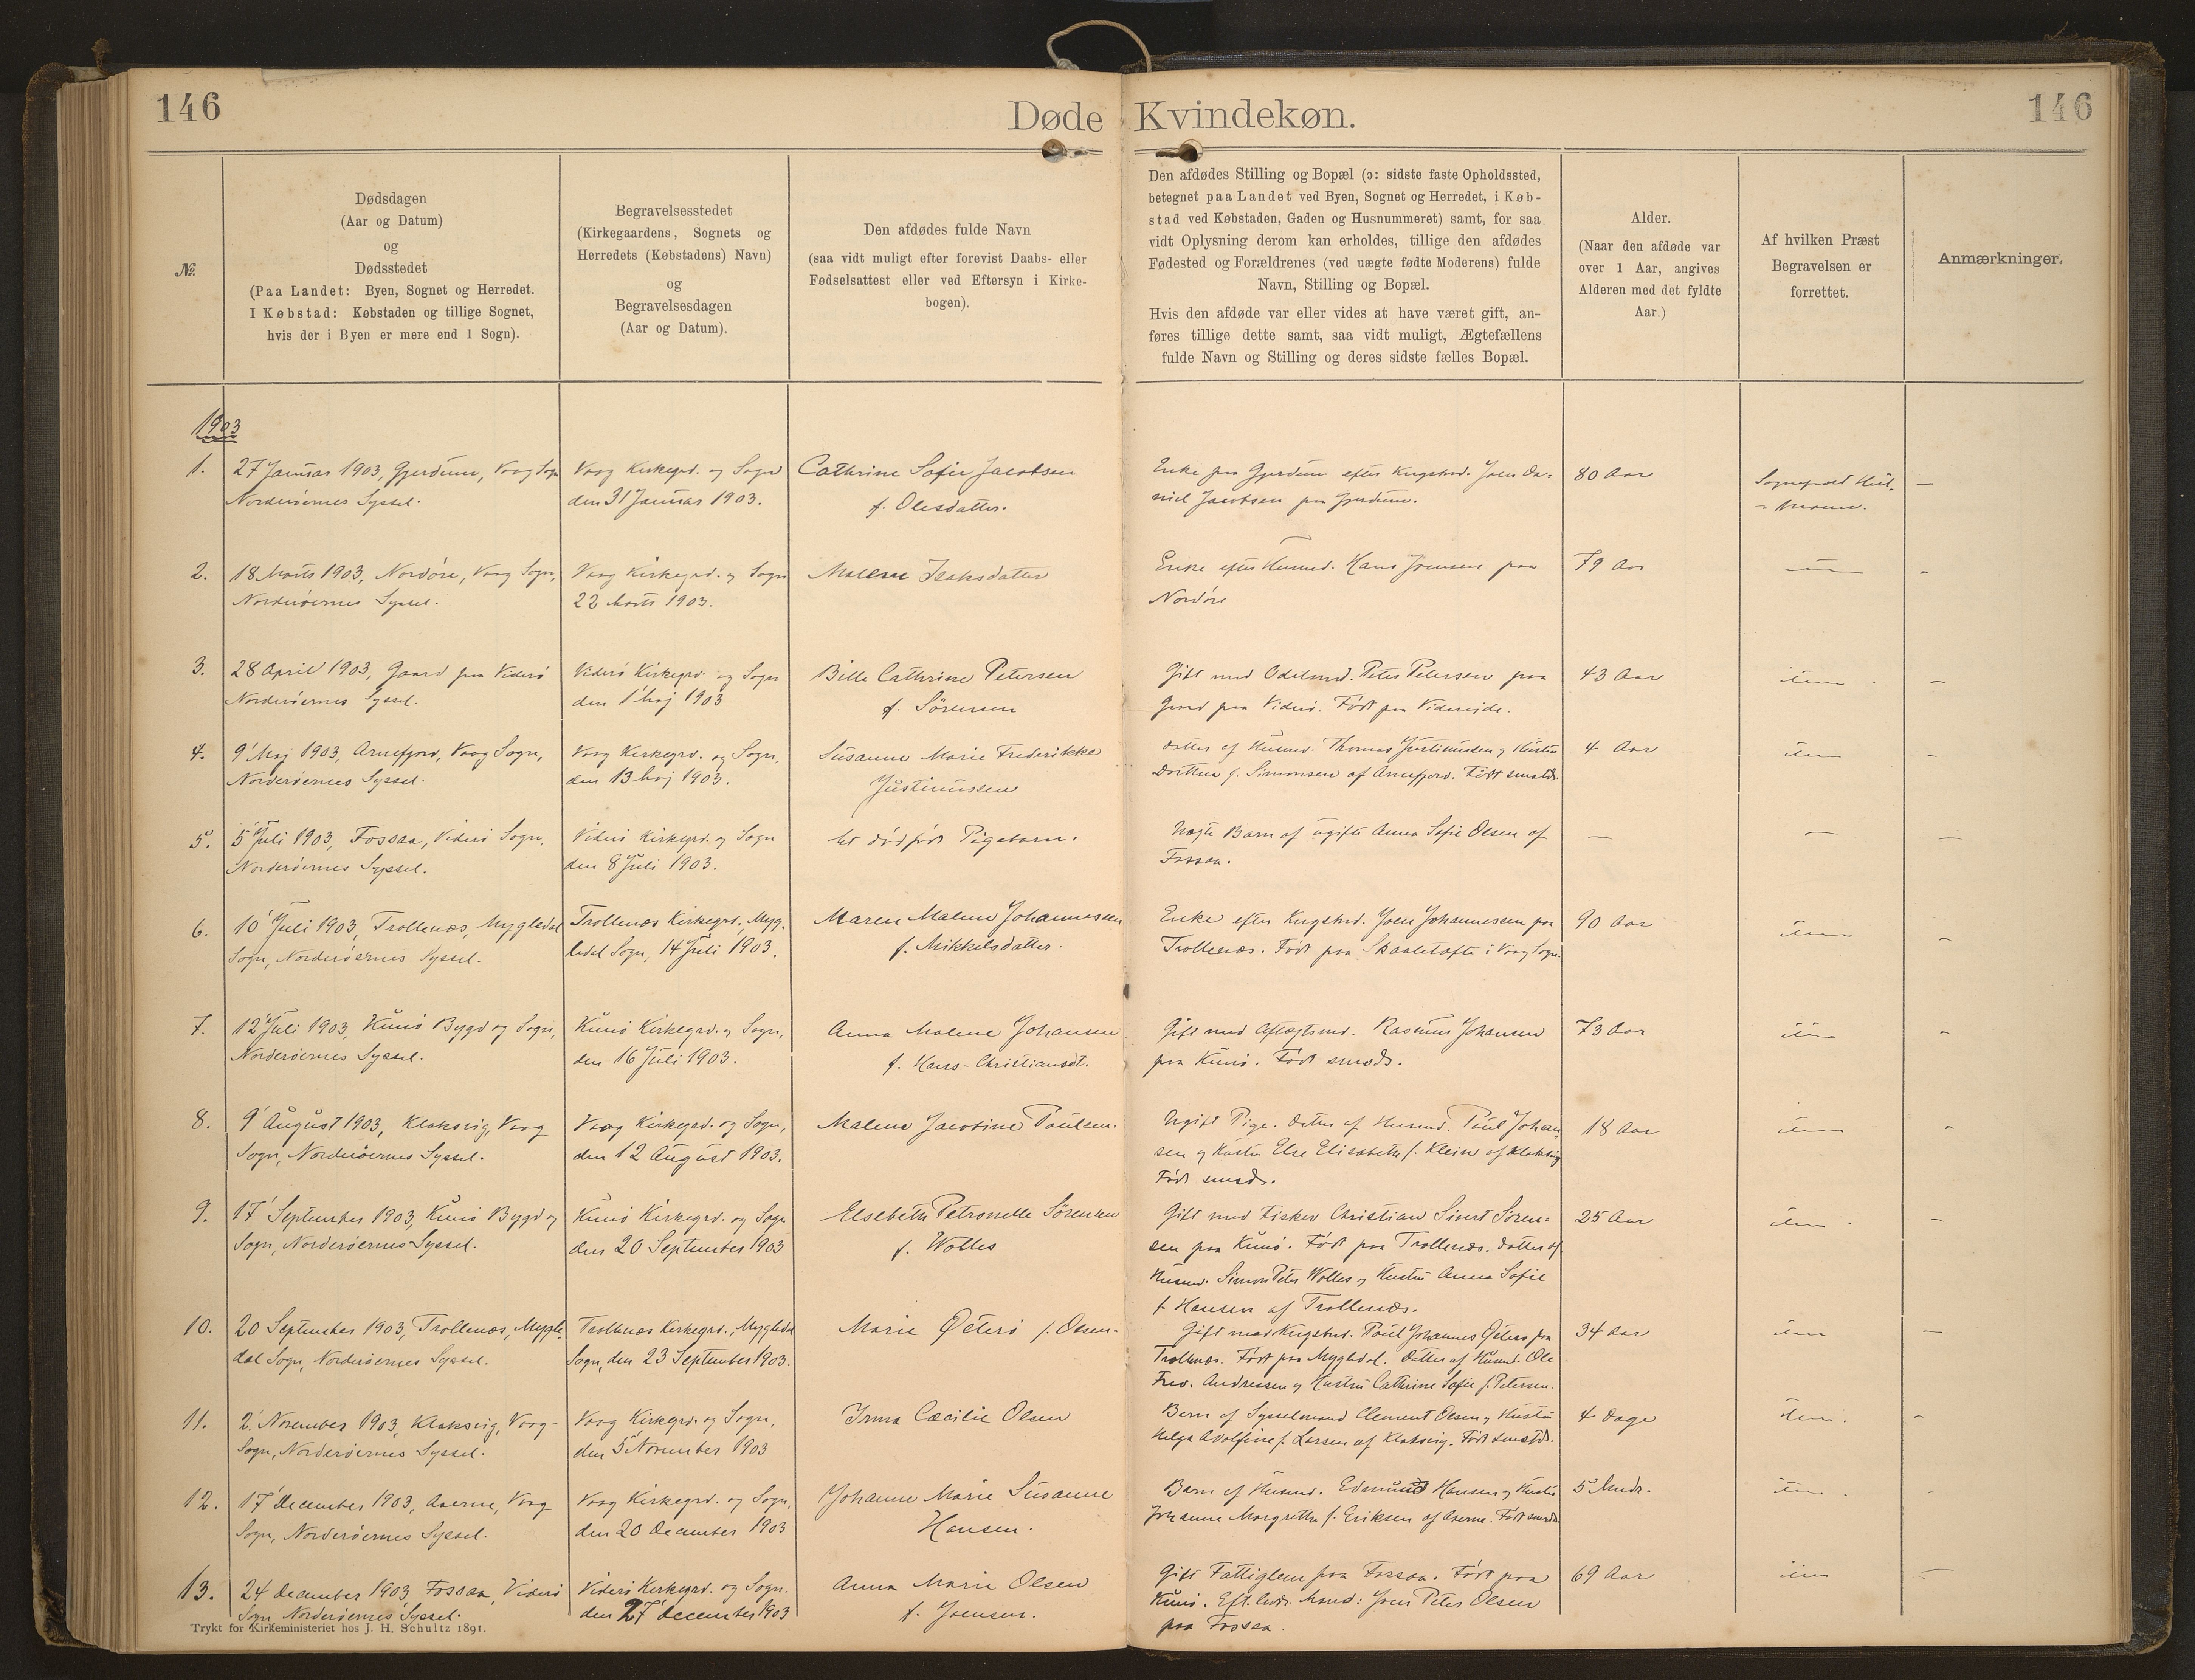 146
Døde Kvindekøn.
146
№.
Dødsdagen
(Aar og Datum)
og
Dødsstedet
(Paa Landet: Byen, Sognet og Herredet.
I Købstad: Købstaden og tillige Sognet,
hvis der i Byen er mere end 1 Sogn).
Begravelsesstedet
(Kirkegaardens, Sognets og
Herredets (Købstadens) Navn)
og
Begravelsesdagen
(Aar og Datum).
Den afdødes fulde Navn
(saa vidt muligt efter forevist Daabs- eller
Fødselsattest eller ved Eftersyn i Kirke-
bogen).
Den afdødes Stilling og Bopæl (ɔ: sidste faste Opholdssted,
betegnet paa Landet ved Byen, Sognet og Herredet, i Køb-
stad ved Købstaden, Gaden og Husnummeret) samt, for saa
vidt Oplysning derom kan erholdes, tillige den afdødes
Fødested og Forældrenes (ved uægte fødte Moderens) fulde
Navn, Stilling og Bopæl.
Hvis den afdøde var eller vides at have været gift, an-
føres tillige dette samt, saa vidt muligt, Ægtefællens
fulde Navn og Stilling og deres sidste fælles Bopæl.
Alder.
(Naar den afdøde var
over 1 Aar, angives
Alderen med det fyldte
Aar.)
Af hvilken Præst
Begravelsen er
forrettet.
Anmærkninger.
1903
1.
27 Januar 1903, Gjerdum, Vaag Sogn
Norderöernes Syssel.
Vaag Kirkegrd. og Sogn
den 31 Januar 1903.
Cathrine Sofie Jacobsen
f. Olesdatter.
Enke paa Gjerdum efter Kngsbnd. Joen Da-
niel Jacobsen paa Gjerdum.
80 Aar
—
2.
18 Marts 1903, Nordöre, Vaag Sogn,
Norderöernes Syssel.
Vaag Kirkegrd. og Sogn
22 Marts 1903.
Malene Isaksdatter
Enke efter Husmd. Hans Joensen paa
Nordöre
79 Aar
3.
28 April 1903, Gaard paa Viderö
Norderöernes Syssel.
Viderö Kirkegrd. og Sogn
den 1' Maj 1903
Bille Cathrine Petersen
f. Sörensen
Gift med Odelsmd. Peter Petersen paa
Gaard paa Viderö. Født paa Videreide.
43 Aar
item
—
4.
9' Maj 1903, Arnefjord, Vaag Sogn,
Norderöernes Syssel.
Vaag Kirkegrd. og Sogn,
den 13 Maj 1903.
Susanne Marie Frederikke
Justinussen
datter af Husmd. Thomas Justinussen og Hustru
Dorthea f. Simonsen af Arnefjord. Født smstds.
4 Aar
item
5.
5' Juli 1903, Fossaa, Viderö Sogn,
Norderöernes Syssel.
Viderö Kirkegrd. og Sogn
den 8 Juli 1903.
Et dödfödt Pigebarn.
Uægte Barn af ugifte Anna Sofie Olsen af
Fossaa.
—
—
—
6.
10' Juli 1903, Trollenæs, Mygledal
Sogn, Norderöernes Syssel.
Trollenæs Kirkegrd., Myg-
ledal Sogn, 14 Juli 1903.
Maren Malene Johannessen
f. Mikkelsdatter.
Enke efter Kngsbnd. Joen Johannessen paa
Trollenæs. Født paa Skaaletofte i Vaag Sogn.
90 Aar
item
7.
12 Juli 1903, Kunö Bygd og Sogn,
Norderöernes Syssel.
Kunö Kirkegrd. og Sogn,
den 16 Juli 1903.
Anna Malene Johansen
f. Hans-Christiansdt.
Gift med Aftægtsmd. Rasmus Johansen
paa Kunö. Født smsds.
73 Aar
item
8.
9' August 1903, Klaksvig, Vaag
Sogn, Norderöernes Syssel.
Vaag Kirkegrd. og Sogn,
den 12 August 1903.
Malene Jacobine Poulsen.
Ugift Pige. Datter af Husmd. Poul Johan-
sen og Hustru Else Elisabeth f. Klein af Klaksvig
Født smsds.
18 Aar
item
9.
17' September 1903, Kunö Bygd og
Sogn, Norderöernes Syssel.
Kunö Kirkegrd. og Sogn
den 20 September 1903
Elsebeth Petronelle Sörensen
f. Wolles
Gift med Fisker Christian Sivert Sören-
sen paa Kunö. Født paa Trollenæs. Datter af
Husmd. Simon Peter Wolles og Hustru Anna Sofie
f. Hansen af Trollenæs.
25 Aar
item
—
10.
20 September 1903, Trollenæs, Mygle-
dal Sogn, Norderöernes Syssel.
Trollenæs Kirkegrd., Mygledal
Sogn, den 23 September 1903.
Marie Østerö f. Olsen.
Gift med Kngsbnd. Poul Johannes Østerö paa
Trollenæs. Født paa Mygledal. Datter af Husmd. Ole
Fred. Andreasen og Hustru Cathrine Sofie f. Petersen.
34 Aar
item
—
11.
2' November 1903, Klaksvig, Vaag-
Sogn, Norderöernes Syssel.
Vaag Kirkegrd. og Sogn,
den 5' November 1903
Irma Cæcilie Olsen
Barn af Sysselmand Clement Olsen og Hustru
Helga Adolfine f. Larsen af Klaksvig. Født smstds.
4 Dage
item.
12.
17' December 1903, Aaerne, Vaag
Sogn, Norderöernes Syssel.
Vaag Kirkegrd. og Sogn,
den 20 December 1903
Johanne Marie Susanne
Hansen.
Barn af Husmd. Edmund Hansen og Hustru
Johanne Margrethe f. Eriksen af Aaerne. Født smsds.
5 Mndr.
item.
13.
24 December 1903 Fossaa, Viderö
Sogn Norderöernes Syssel.
Viderö Kirkegrd. og Sogn.
den 27' December 1903
Anna Marie Olsen
f. Joensen.
Gift Fattiglem paa Fossaa. Født paa
Kunö. Eft. levd. Mand: Joen Peter Olsen
paa Fossaa.
69 Aar
item
—
Trykt for Kirkeministeriet hos J. H. Schultz 1891.